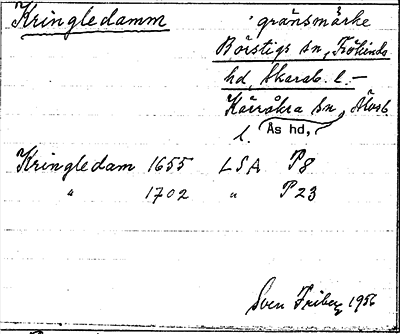 Kringledamm gränsmärke
Börstigs sn, Frökinds
hd, Skarab. l. —
Kärråkra sn, Älvsb
l. Ås hd,
Kringledam 1655 LSA P8
" 1702 " P23
Sven Friberg 1956